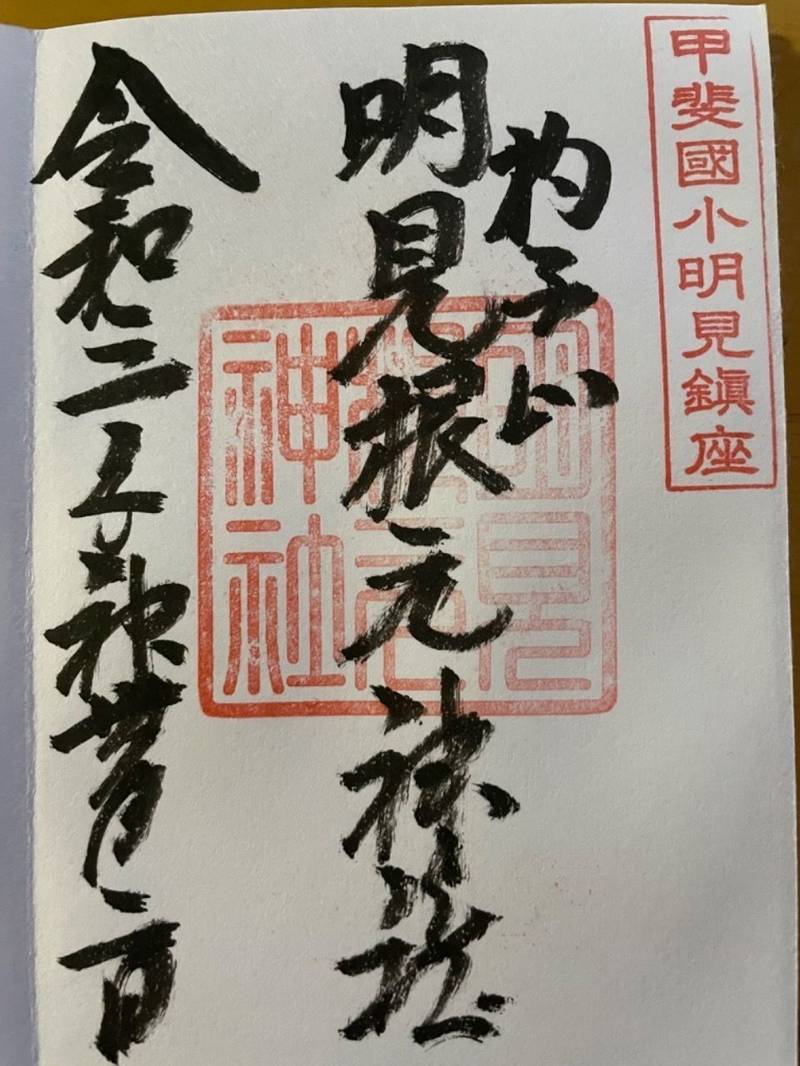 甲斐國小明見鎮座
杓子山
明見根元神社
明見
根元
神社
令和三年